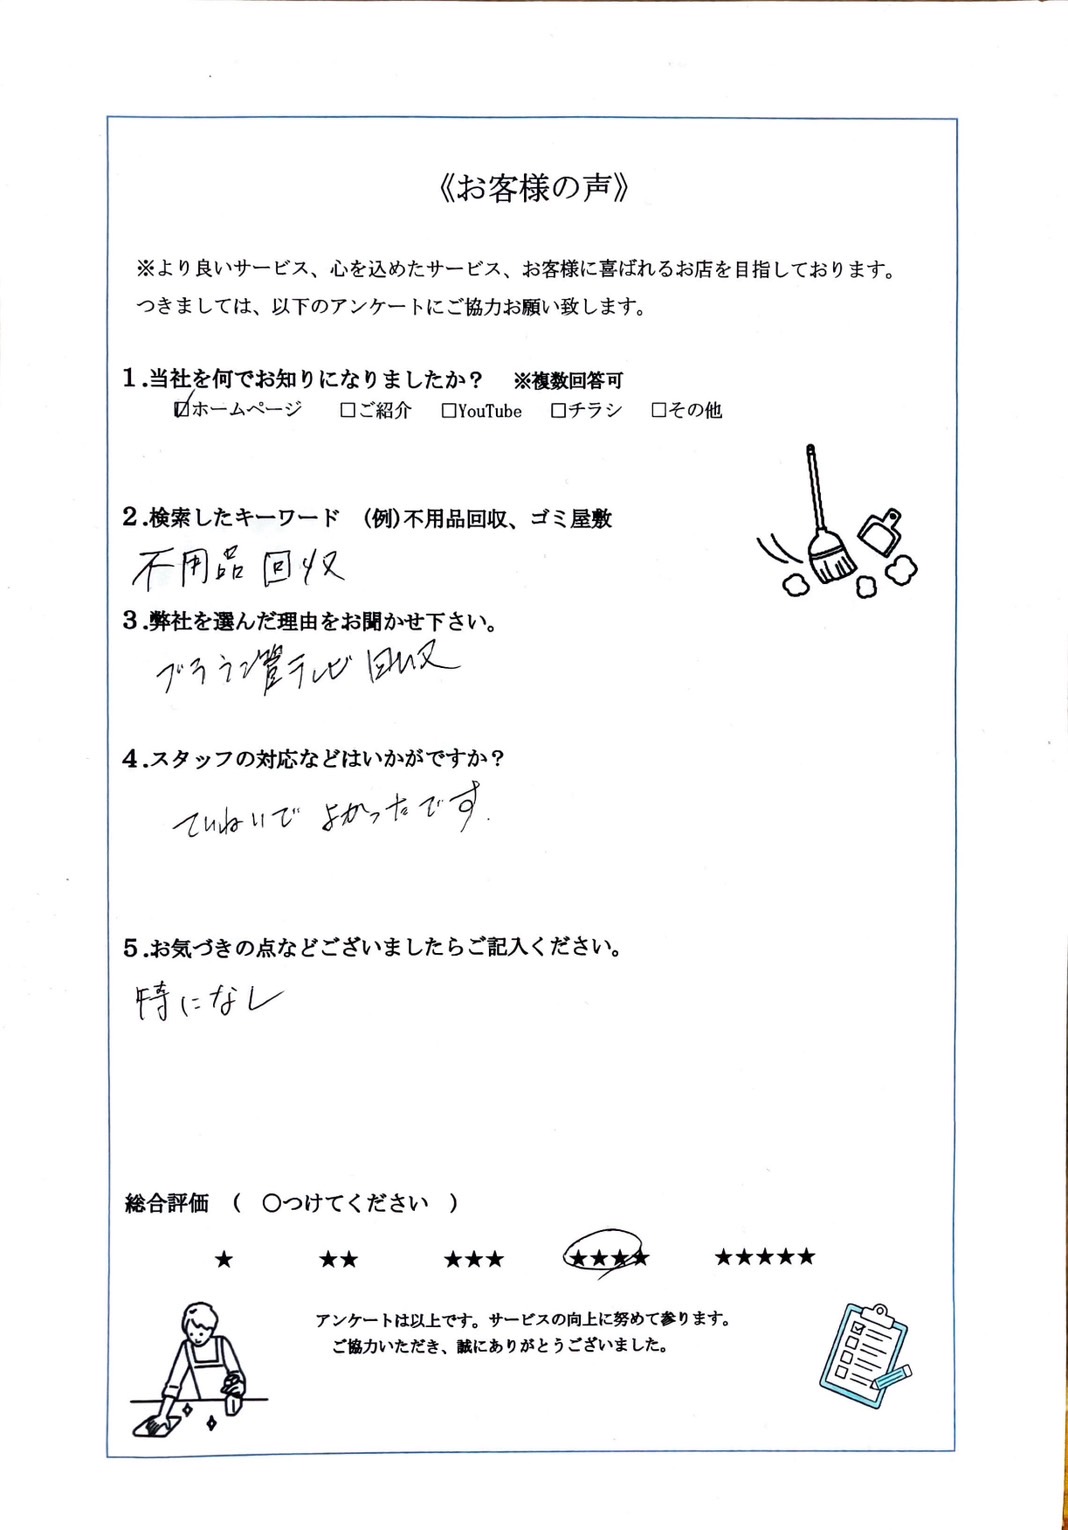 《お客様の声》
※より良いサービス、心を込めたサービス、お客様に喜ばれるお店を目指しております。
つきましては、以下のアンケートにご協力お願い致します。
1.当社を何でお知りになりましたか？ ※複数回答可
☑ホームページ □ご紹介 □YouTube □チラシ □その他
2.検索したキーワード (例)不用品回収、ゴミ屋敷
不用品回収
3.弊社を選んだ理由をお聞かせ下さい。
ブラウン管テレビ回収
4.スタッフの対応などはいかがですか？
ていねいでよかったです.
5.お気づきの点などございましたらご記入ください。
特になし
総合評価 ( 〇つけてください )
★ ★★ ★★★ ★★★★ ★★★★★
アンケートは以上です。サービスの向上に努めて参ります。
ご協力いただき、誠にありがとうございました。